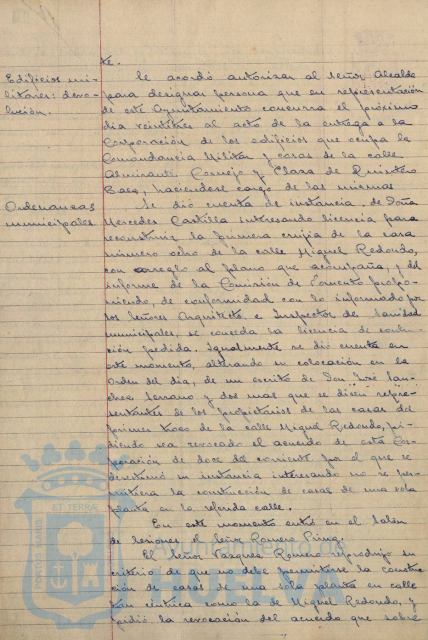 te.
Edificios mi-
litares: devo-
lución.
Se acordó autorizar al Señor Alcalde
para designar persona que en representación
de este Ayuntamiento concurra el próximo
dia veintitres al acto de la entrega a la
Corporación de los edificios que ocupa la
Comandancia Militar y casas de la calle
Almirante Cornejo y Plaza de Quintero
Baez, haciendose cargo de las mismas
Ordenanzas
municipales
Se dió cuenta de instancia de Doña
Mercedes Castilla interesando licencia para
reconstruir la primera crujia de la casa
número ocho de la calle Miguel Redondo,
con arreglo al plano que acompaña, y del
informe de la Comisión de Fomento propo-
niendo, de conformidad con lo informado por
los Señores Arquitecto e Inspector de Sanidad
municipales, se conceda la licencia de construc-
ción pedida. Igualmente se dió cuenta en
este momento, alterando su colocación en la
Orden del dia, de un escrito de Don José San-
chez Serrano y dos mas que se dicen repre-
sentantes de los propietarios de las casas del
primer trozo de la calle Miguel Redondo, pi-
diendo sea revocado el acuerdo de esta Cor-
poración de doce del corriente por el que se
desestimó su instancia interesando no se per-
mitiera la construcción de casas de una sola
planta en la referida calle.
En este momento entró en el Salón
de Sesiones el Señor Romero Pinzo.
El Señor Vazquez Romero reprodujo su
criterio de que no debe permitirse la construc-
ción de casas de una sola planta en calle
tan céntrica como la de Miguel Redondo, y
pidió la revocación del acuerdo que sobre